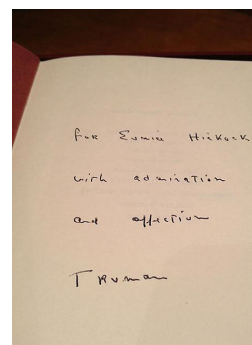 for Eunice Hickock
with admiration
and affection
Truman